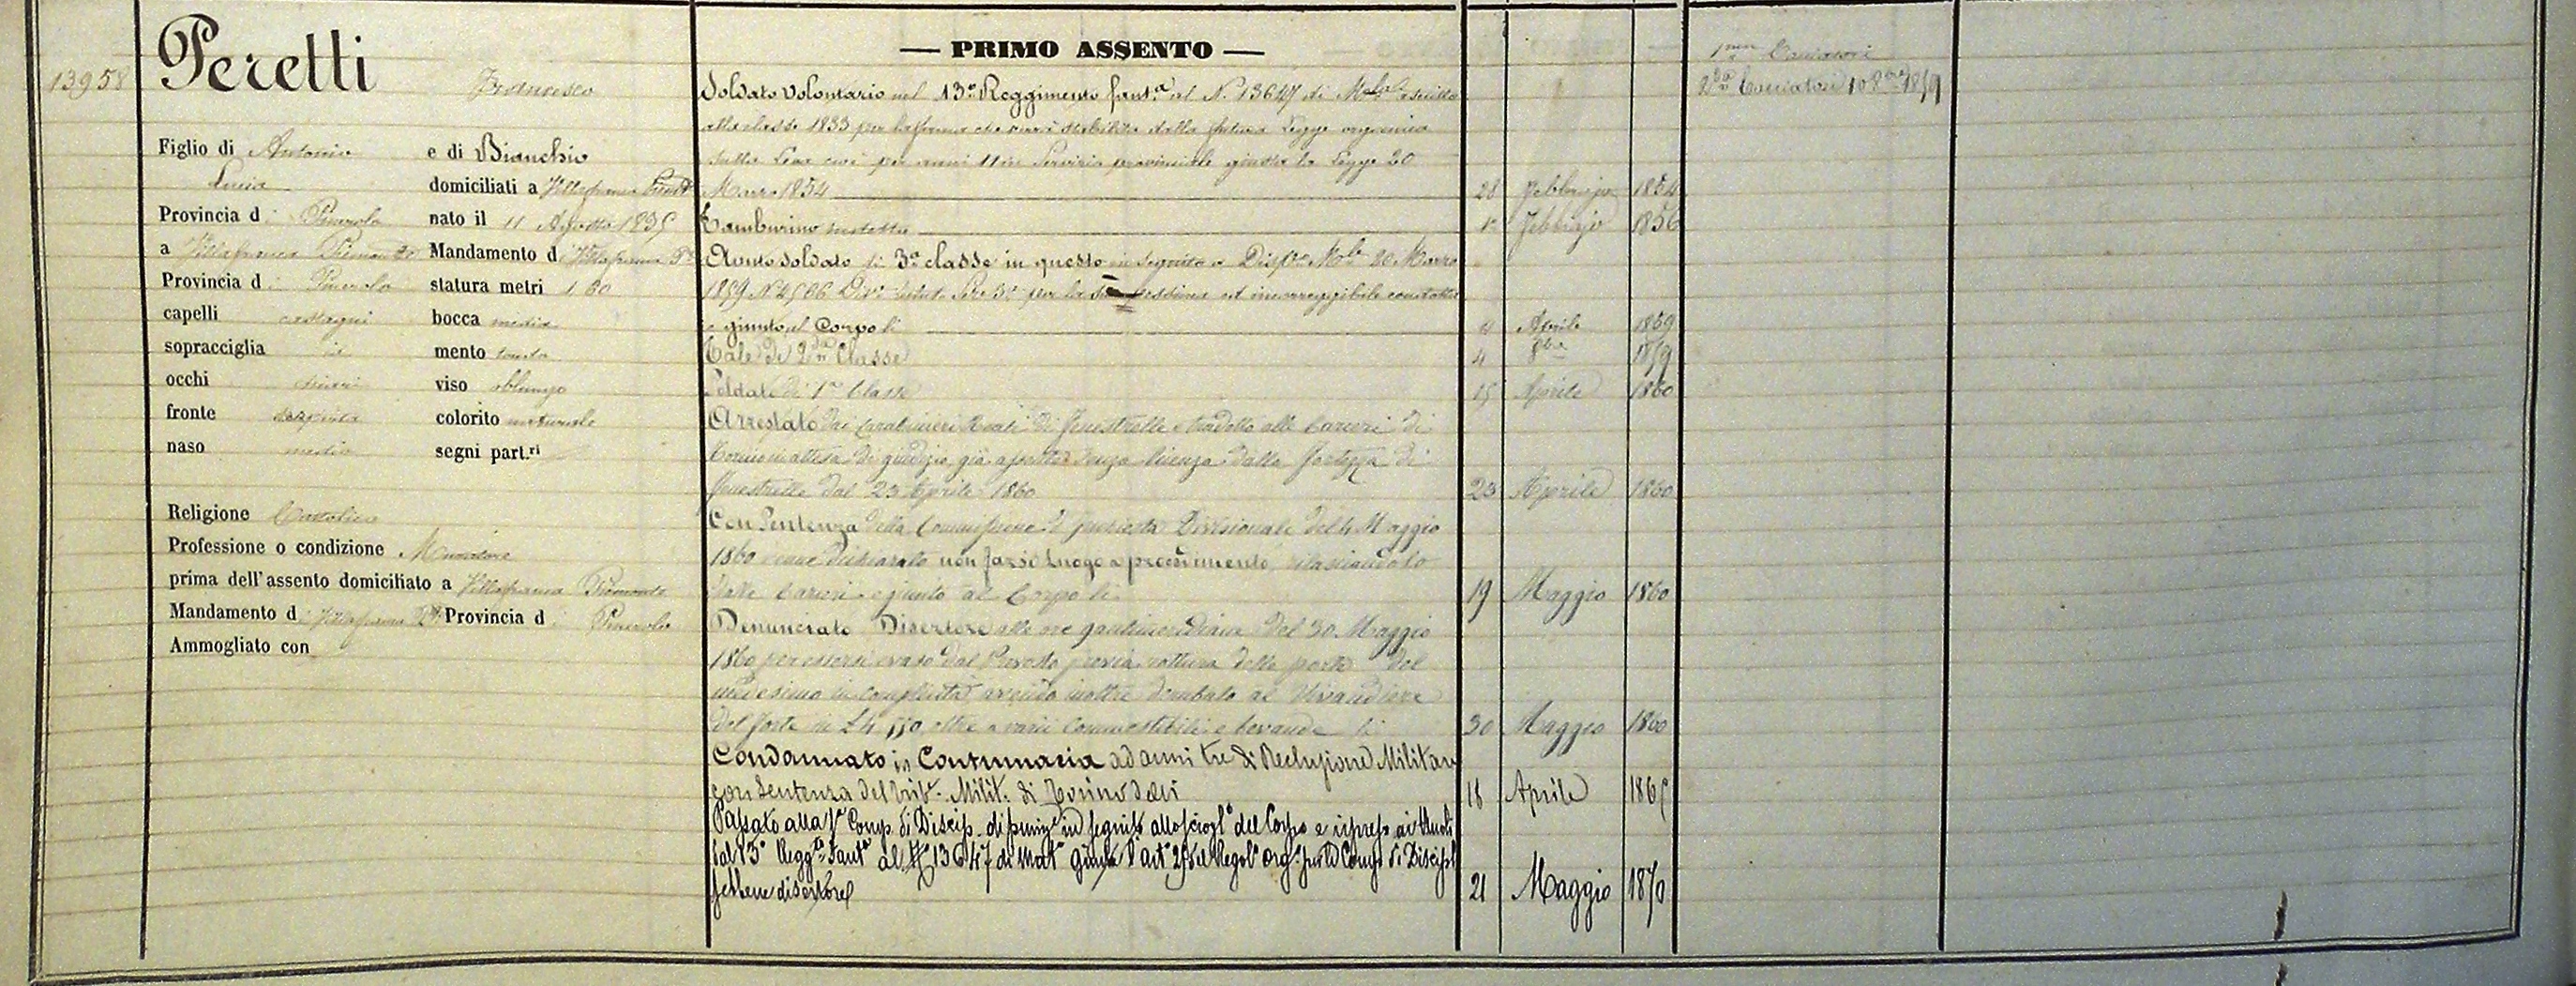 13958
Peretti Francesco
Figlio di Antonio e di Bianchio
Lucia domiciliati a Villafranca Piemte
Provincia di Pinerolo nato il 11 Agosto 1835
a Villafranca Piemonte Mandamento di Villafranca Pte
Provincia di Pinerolo statura metri 1 60
capelli castagni bocca media
sopracciglia id mento tondo
occhi viso oblungo
fronte scoperta colorito naturale
naso medio segni part.ri
Religione Cattolica
Professione o condizione Muratore
prima dell'assento domiciliato a Villafranca Piemonte
Mandamento di Villafranca Pte Provincia di Pinerolo
Ammogliato con
— PRIMO ASSENTO —
Soldato volontario nel 13° Reggimento fant.a al N. 13647 di Mla ascritto
alla classe 1833 per la ferma che verrà stabilita dalla futura Legge organica
sulla Leva cioè per anni 11 in Servizio provinciale giusta la Legge 20
Marzo 1854 28 Febbrajo 1854
Tamburino in detto 1° Febbrajo 1856
Giunto soldato di 3a classe in questo in seguito a Disp.o Mle 20 Marzo
1859 N 4506 per la sua pessima ed incorreggibile condotta
e giunto al Corpo li 4 Aprile 1859
Tale di 2da Classe 4 8bre 1859
Soldato di 1a Classe 15 Aprile 1860
Arrestato dai Carabinieri Reali di Fenestrelle e tradotto alle Carceri di
Torino in attesa di giudizio già assente senza licenza dalla Fortezza di
Fenestrelle dal 23 Aprile 1860 23 Aprile 1860
Con Sentenza della Commissione d'Inchiesta Divisionale del 4 Maggio
1860 venne dichiarato non farsi luogo a procedimento rilasciandolo
dalle Carceri e giunto al Corpo li 19 Maggio 1860
Denunciato Disertore alle ore 9 antimeridiane del 30 Maggio
1860 per essersi evaso dal Prevosto previa rottura della porta del
medesimo in complicità avendo inoltre derubato al Vivandiere
del forte di L. 550 oltre a varii commestibili e bevande li 30 Maggio 1860
Condannato in Contumacia ad anni tre di Reclusione Militare
con Sentenza del Trib.e Milit.e di Torino delli 18 Aprile 1865
Passato alla 1a Comp. di Discip. di puniz.e in seguito allo sciogl.o del Corpo e ripreso ai Ruoli
dal 13° Regg.to Fant.a al N 13647 di Mat.a giusta l'art. 25 del Regol.o Org.o per le Comp. di Discipl.
sebbene disertore 21 Maggio 1870
1ma Cacciatori
2da Cacciatori 10 8bre 1859